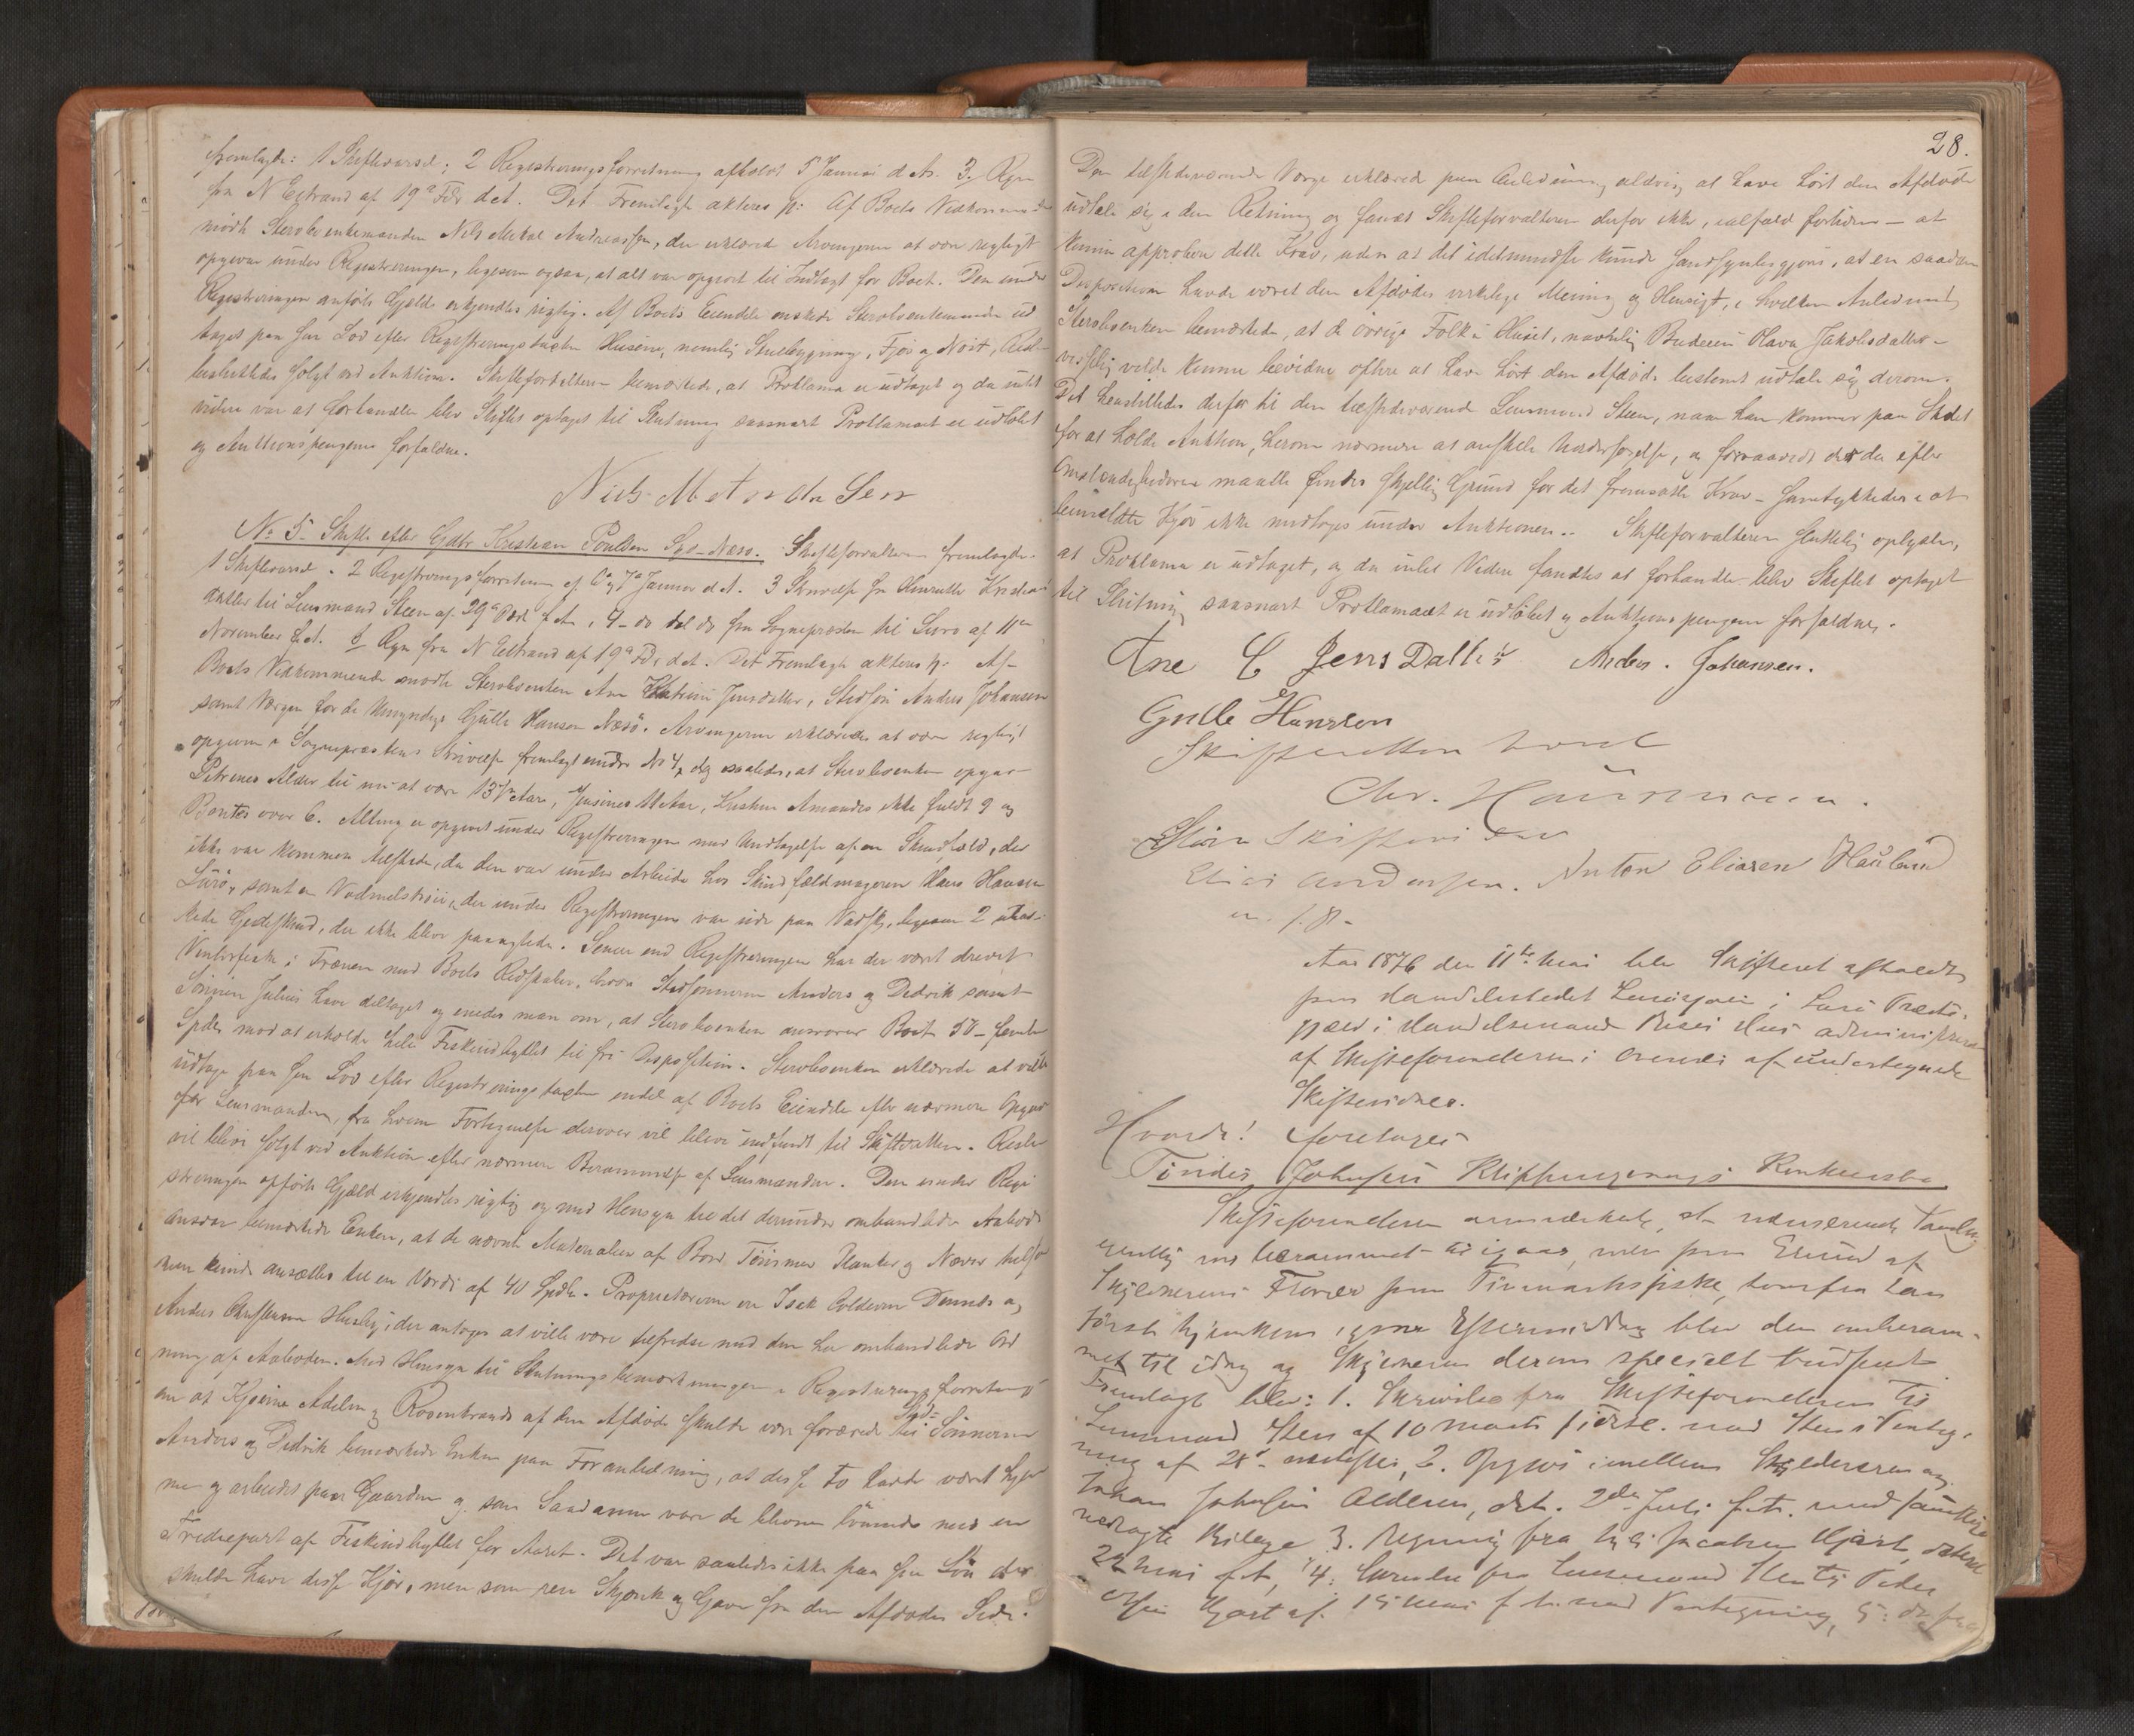 fremlagde: 1 Skiftevarsel; 2 Registreringsforretning afholdt 5 Januar d. A. 3. Regn
fra N Estrand af 19de Fbr d.A. Det Fremlagte akteres p: Af Boets Vedkommende
mødte Sterboenkemanden Nils Mikal Andreassen, der erklærede Arvingerne at være rigtigt
opgivne under Registreringen, ligesom ogsaa, at alt var opgivet til Indtægt for Boet. Den under
Registreringen anførte Gjæld erkjendtes rigtig. Af Boets Eiendele ønskede Sterboenkemanden ud
taget paa sin Lod efter Registreringstaxten Husene, nemlig Stuebygning, Fjøs og Nøst, Rest
besluttedes solgt ved Auktion. Skifteforvalteren bemærkede, at Proklama er udtaget og da intet
videre var at forhandle blev Skiftet optaget til Slutning saasnart Proklamaet er udløbet
og Auktionspengene forfaldne.
Niels M Andr Sen
No 5. Skifte efter Gdbr Kristian Poulsen Syd-Næsø. Skifteforvalteren fremlagde
1 Skiftevarsel. 2 Registreringsforretning af 6 og 7de Januar d.A. 3 Skrivelse fra Henriette Kristians
datter til Lensmand Steen af 29de f.A., 4 do fra Sognepræsten til Lurø af 11te
November f.A. 5 Regn fra N Estrand af 19de Fbr d.A. Det Fremlagte akteres p. Af
Boets Vedkommende mødte Sterboenken Ane Katrine Jensdatter, Stedsøn Anders Johansen
samt Værgen for de Umyndige Gulle Hansen Næsø. Arvingerne erklæredes at være rigtigt
opgivne i Sognepræstens Skrivelse fremlagt under No 4, dog saaledes, at Sterboenken opgav
Petrines Alder til nu at være 13 Aar, Jensines 11 Aar, Kristian Amandus ikke fuldt 9 og
Bentes over 6. Alting er opgivet under Registreringen med Undtagelse af en Skindfæld, der
ikke var kommen tilstede, da den var under Arbeide hos Skindfældmageren Hans Hansen
Lurø, samt en Vadmelstrøie, der under Registreringen var ude paa Vadsk, ligesom 2
Gjedeskind, der ikke blev paaagtede. Senere end Registreringen har der været drevet
Vinterfiske i Trænen med Boets Redskaber, hvori Stedsønnerne Anders og Dedrik samt
Sønnen Julius have deltaget og enedes man om, at Sterboenken ansvarer Boet 50
Spdlr mod at erholde hele Fiskeindbyttet til fri Disposition. Sterboenken erklærede at ville
udtage paa sin Lod efter Registreringstaxten endel af Boets Eiendele efter nærmere Opgivt
for Lensmanden, fra hvem Fortegnelse derover vil blive indsendt til Skifteretten. Resten
vil blive solgt ved Auktion efter nærmere Berammelse af Lensmanden. Den under Regi
streringen opførte Gjæld erkjendtes rigtig og med Hensyn til det derunder omhandlede Aabods
ansvar bemærkede Enken, at de nævnte Materialier af Bord, Tømmer Planker og Næver
kunde ansættes til en Værdi af 40 Spdlr. Proprietærerne ere Isak Coldevin Dønnes og
Anders Christensen Husby, der antages at ville være tilfredse med den her omhandlede Ord
ning af Aaboden. Med Hensyn til Slutningsbemærkningen i Registreringsforretningen
om at Kjøerne Adelin og Rosenbrand af den Afdøde skulde være forærede til Stedsønnerne
Anders og Dedrik bemærkede Enken paa Foranledning, at disse to havde været hjem
me og arbeidet paa Gaarden og som Saadanne vare de blevne lønnede med en
Trediepart af Fiskeindbyttet for Aaret. Det var saaledes ikke paa sin Løn de
skulde have disse Kjør, men som ren Skjænk og Gave fra den Afdødes Side.
28.
Den tilstedeværende Værge erklærede paa Anledning aldrig at have hørt den Afdøde
udtale sig i den Retning og fandt Skifteforvalteren derfor ikke, ialfald fortiden – at
kunne approbere dette Krav, uden at det idetmindste kunde sandsynliggjøres, at en saadan
Disposition havde været den Afdødes virkelige Mening og Hensigt, i hvilken Anledning
Sterboenken bemærkede, at de øvrige Folk i Huset, navnlig Budeien Olava Jakobsdatter –
visselig vilde kunne bevidne oftere at have hørt den Afdøde bestemt udtale sig derom.
Det henstilledes derfor til den tilstedeværende Lensmand Steen, naar han kommer paa Stedet
for at holde Auktion, herom nærmere at anstille Undersøgelse, og forsaavidt der da efter
Omstændighederne maatte findes skjellig Grund for det fremsatte Krav – samtykkedes i at
bemeldte Kjør ikke medtages under Auktionen. Skifteforvalteren endelig oplyste,
at Proklama er udtaget, og da intet Videre fandtes at forhandle blev Skiftet optaget
til Slutning saasnart Proklamaet er udløbet og Auktionspengene forfaldne.
Ane C Jens Datter Anders. Johansen.
Gulle Hansen
Skifteretten hævet
Chr. Hausmann.
Som Skiftevidner
Elias Andersen. Anton Eliasen Hauland
m. f. P.
Aar 1876 den 11te Mai blev Skifteret afholdt
paa Handelsstedet i Lurø Præste
gjæld i Handelsmand Hus administreret
af Skifteforvalteren i Overvær af undertegnede
Skiftevidner.
Hvorda! foretages
Tindes Johnsen Klippingvaags Konkursbo
Skifteforvalteren bemærkede, at nærværende Samling
egentlig var berammet til igaar, men paa Grund af
Skyldnerens Fravær paa Finmarksfiske, hvorfra han
først hjemkom igaar Eftermiddag blev den omberam-
met til idag og Skyldneren derom specielt tilsagt.
Fremlagt blev: 1. Skrivelse fra Skifteforvalteren til
Lensmand Steen af 10 Marts sidstl. med Steens Paateg-
ning af 28 næstefter, 2. Opgjør imellem Skyldneren og
Johan Johnsen Alderen, dat. 2den Juli f.A. med
Bilage 3. Regning fra Hjart, dateret
22 Mai f.A., 4: Skrivelse fra Lensmand Steen til Peder
Hjart af 15 Mai f.A. med Paategning, 5: do fra